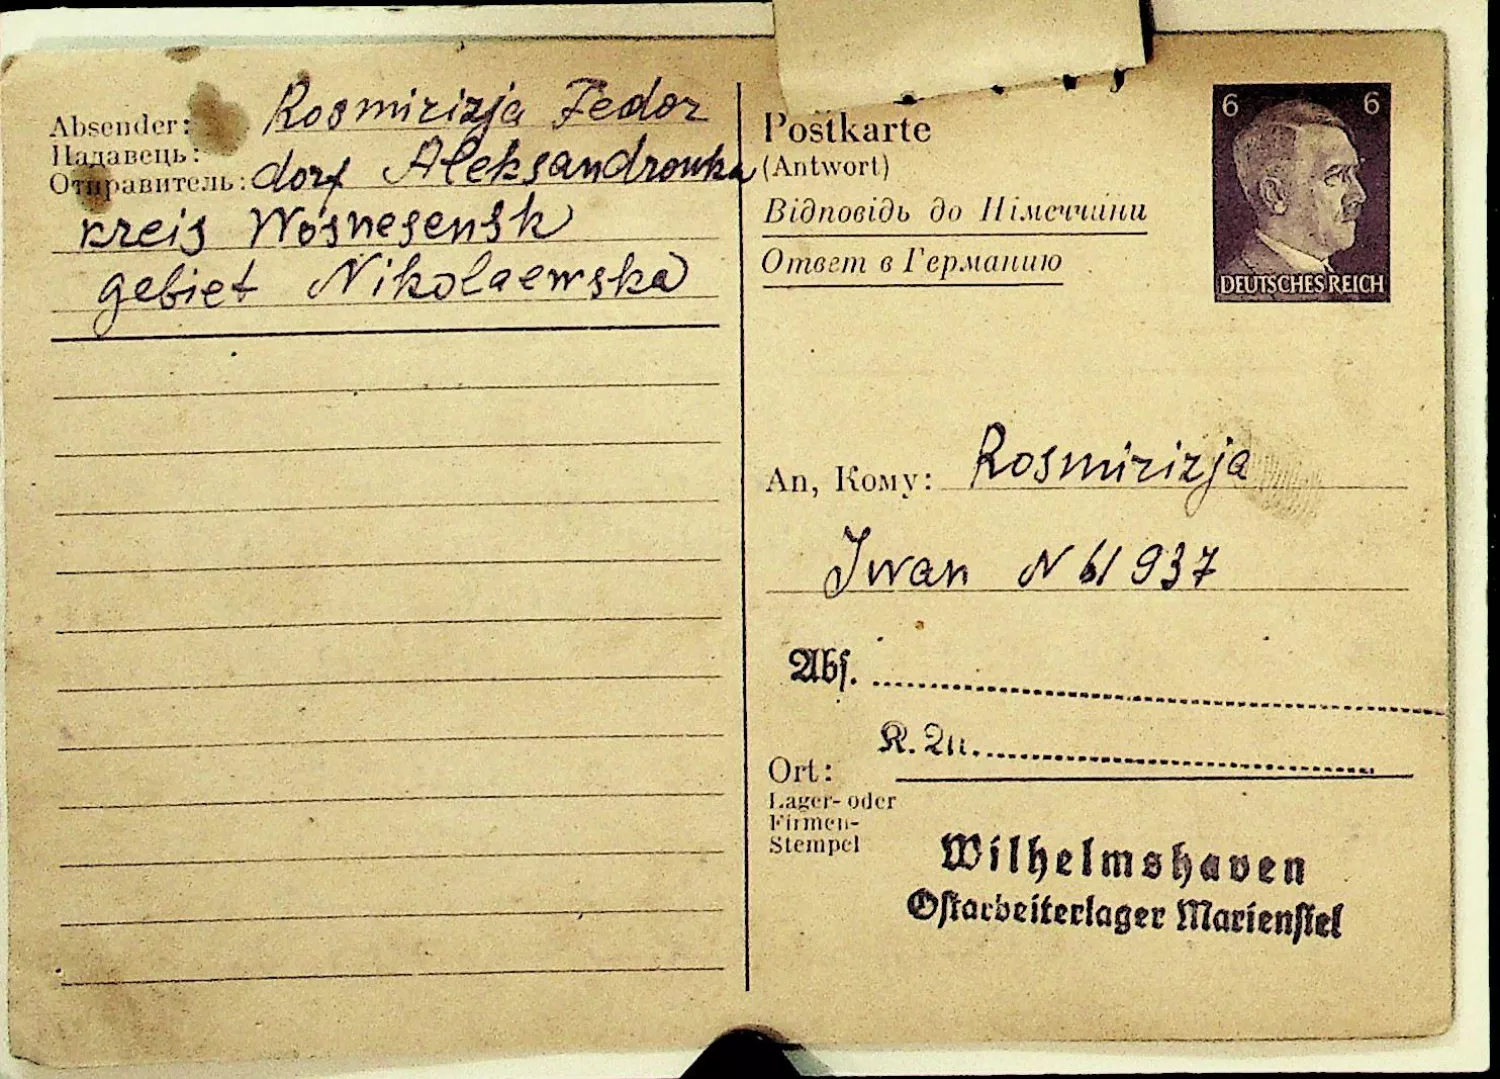 Absender: Rosmirizja Fedor
Надавець:
Отправитель: dorf Aleksandrowka
kreis Wosnesensk
gebiet Nikolaewska
Postkarte
(Antwort)
Відповідь до Німеччини
Ответ в Германию
6 6
DEUTSCHES REICH
An, Кому: Rosmirizja
Iwan N 61 937
Abs.
K. Nr.
Ort:
Lager- oder
Firmen-
Stempel
Wilhelmshaven
Ostarbeiterlager Mariensiel